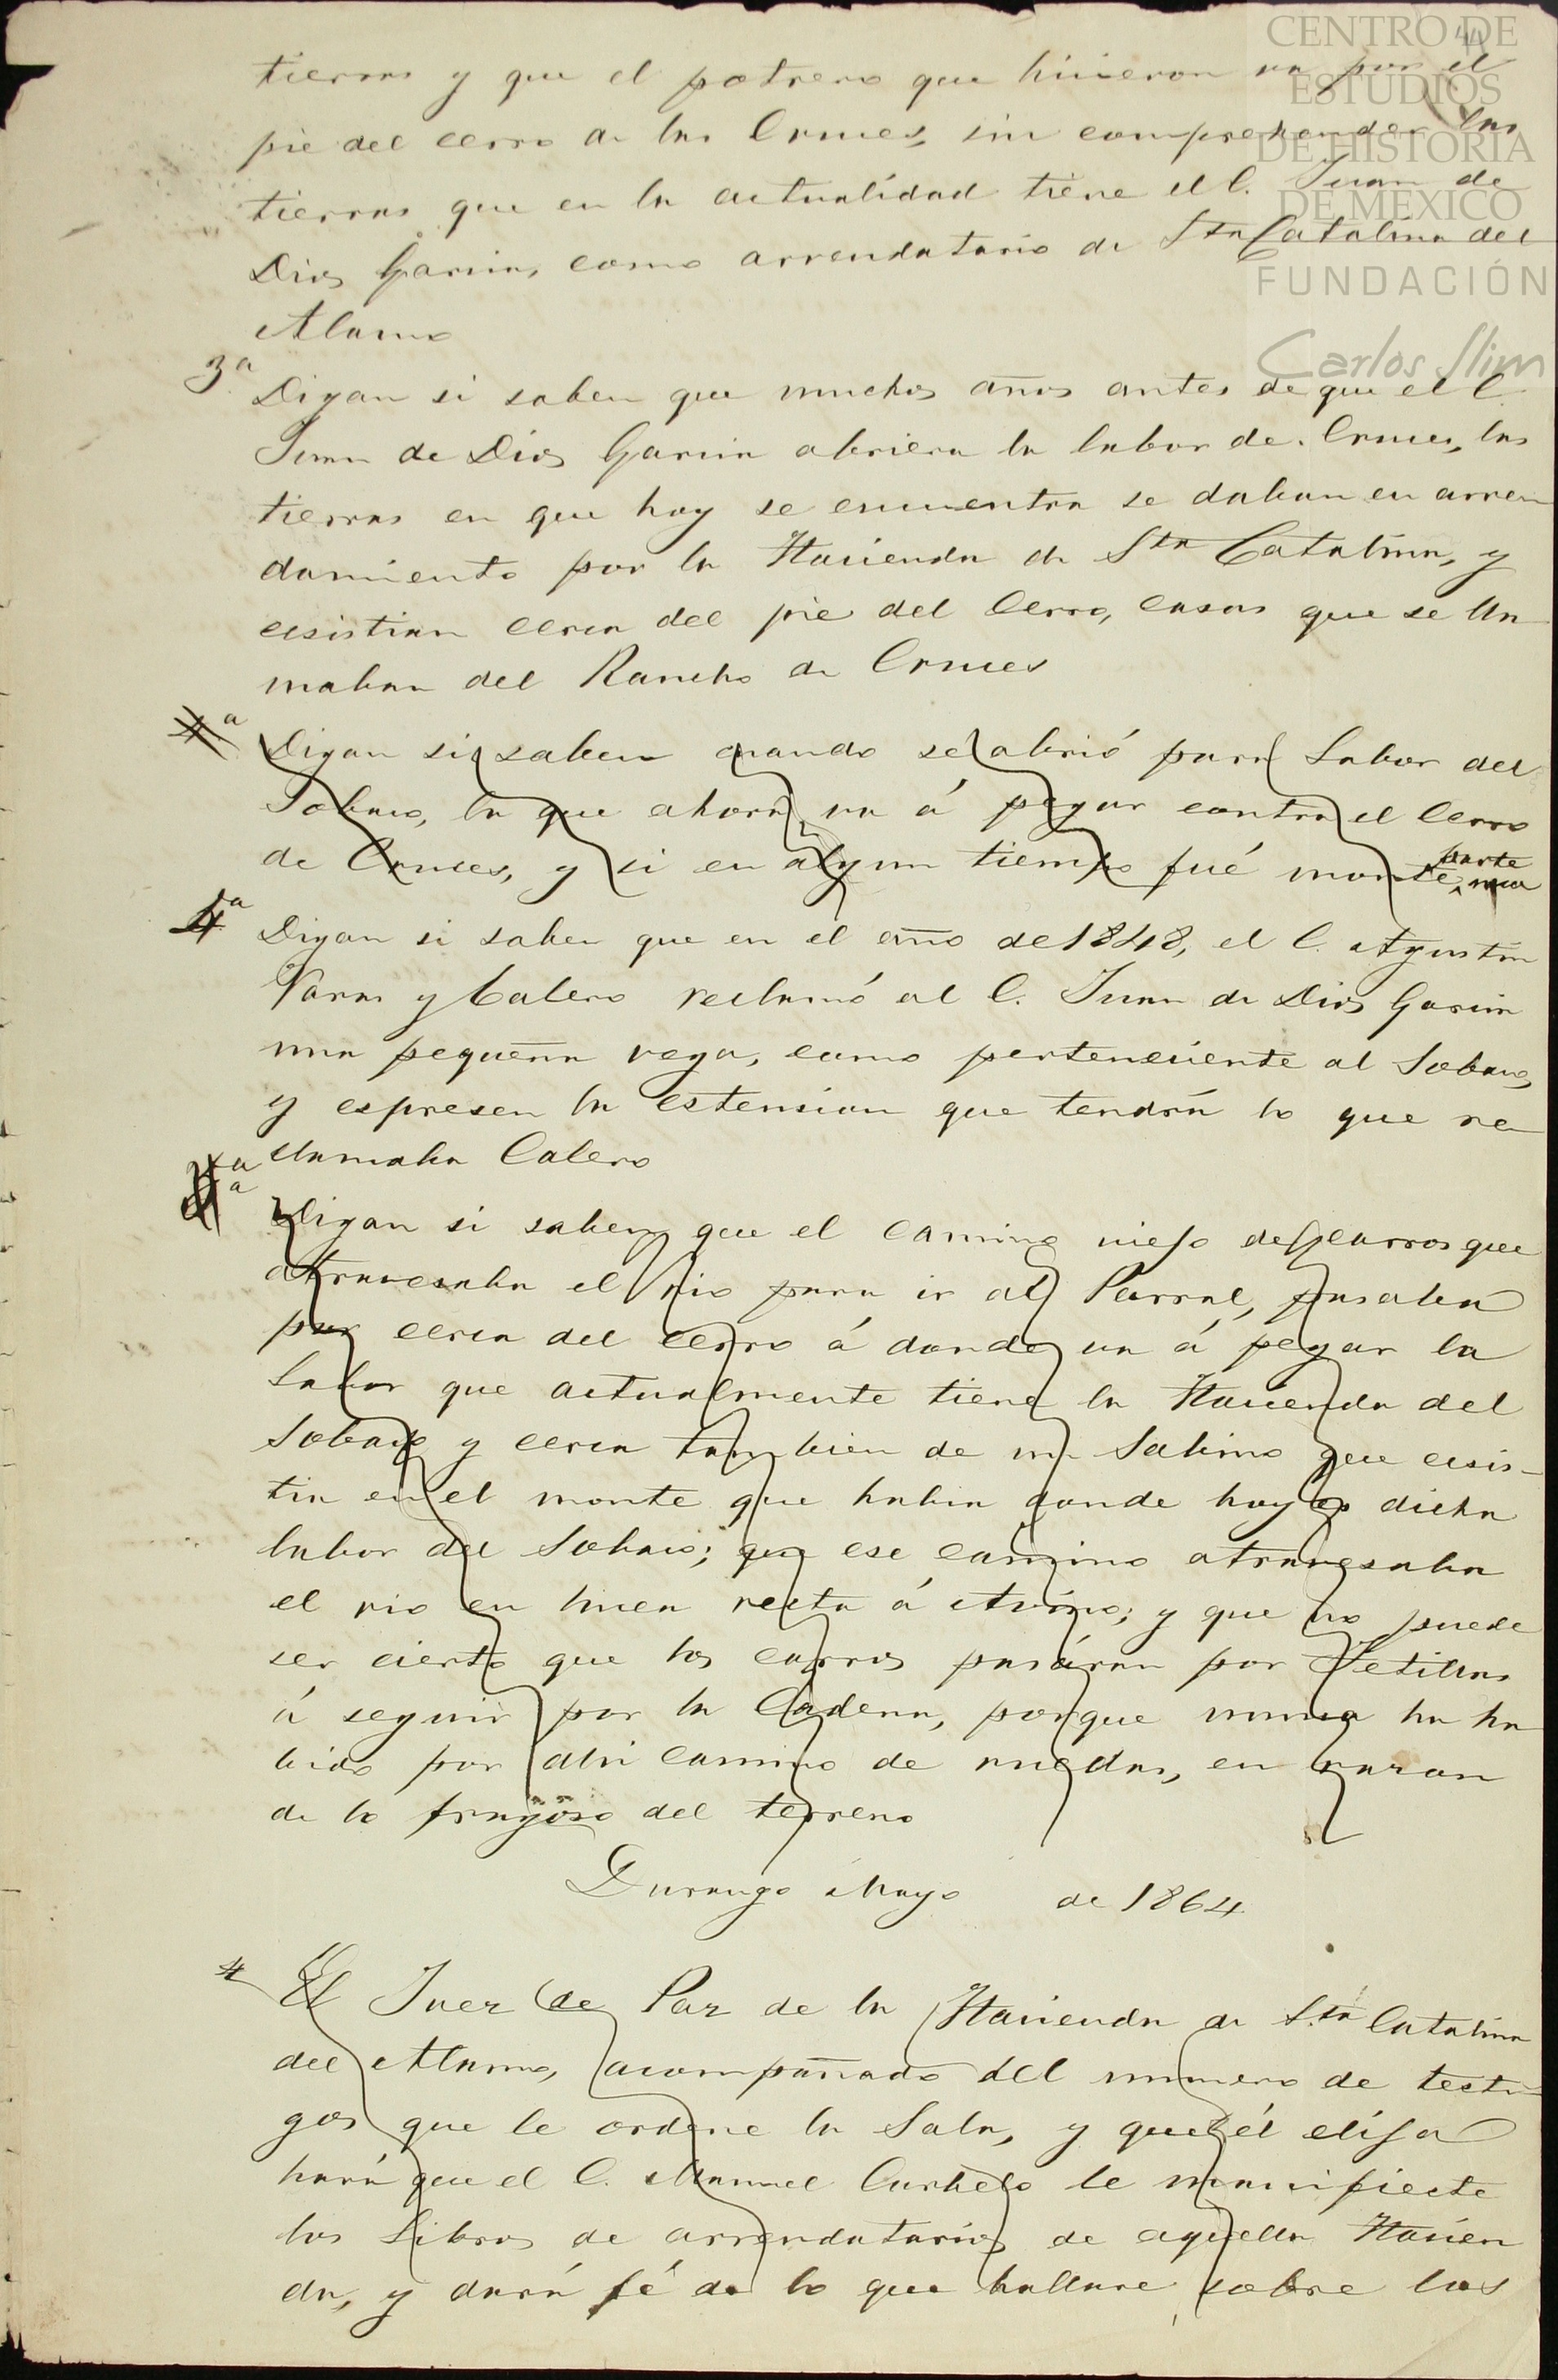 CENTRO DE
ESTUDIOS
DE HISTORIA
DE MEXICO
FUNDACIÓN
Carlos Slim
tierras y que el potrero que hicieron va por el
pie del cerro de las Cruces, sin comprehender las
tierras que en la actualidad tiene el C. Juan de
Dios Garcia, como arrendatario de Sta Catalina del
Alamo
3a Digan si saben que muchos años antes de que el C.
Juan de Dios Garcia abriera la labor de Cruces, las
tierras en que hoy se encuentra se daban en arren
damiento por la Hacienda de Sta Catalina, y
ecsistian cerca del pie del Cerro, casas que se lla
maban del Rancho de Cruces
4a Digan si saben cuando se abrió para labor del
Sobaco, la que ahora va á pegar contra el Cerro
de Cruces, y si en algun tiempo fué monte parte
4a Digan si saben que en el año de 1848, el C. Agustin
Varas y Calero reclamó al C. Juan de Dios Garcia
una pequeña vega, como perteneciente al Sobaco,
y espresen la estension que tendria lo que re
clamaba Calero
Digan si saben que el camino viejo de carros que
atravesaba el rio para ir al Parral, pasaba
por cerca del cerro á donde va á pegar la
labor que actualmente tiene la Hacienda del
Sobaco y cerca tambien de un Sabino que ecsis-
tia en el monte que habia donde hoy es dicha
labor del Sobaco; que ese camino atravesaba
el rio en linea recta á Avino; y que no puede
ser cierto que los carros pasáran por Tetillas
á seguir por la Cadena, porque nunca ha ha
bido por ahi camino de ruedas, en razon
de lo fragoso del terreno
Durango Mayo de 1864
4 El Juez de Paz de la Hacienda de Sta Catalina
del Alamo, acompañado del numero de testi
gos que le ordene la Sala, y que él elija
hará que el C. Manuel Curbelo le manifieste
los Libros de arrendatarios de aquella Hacien
da, y dará fé de lo que hallare sobre las